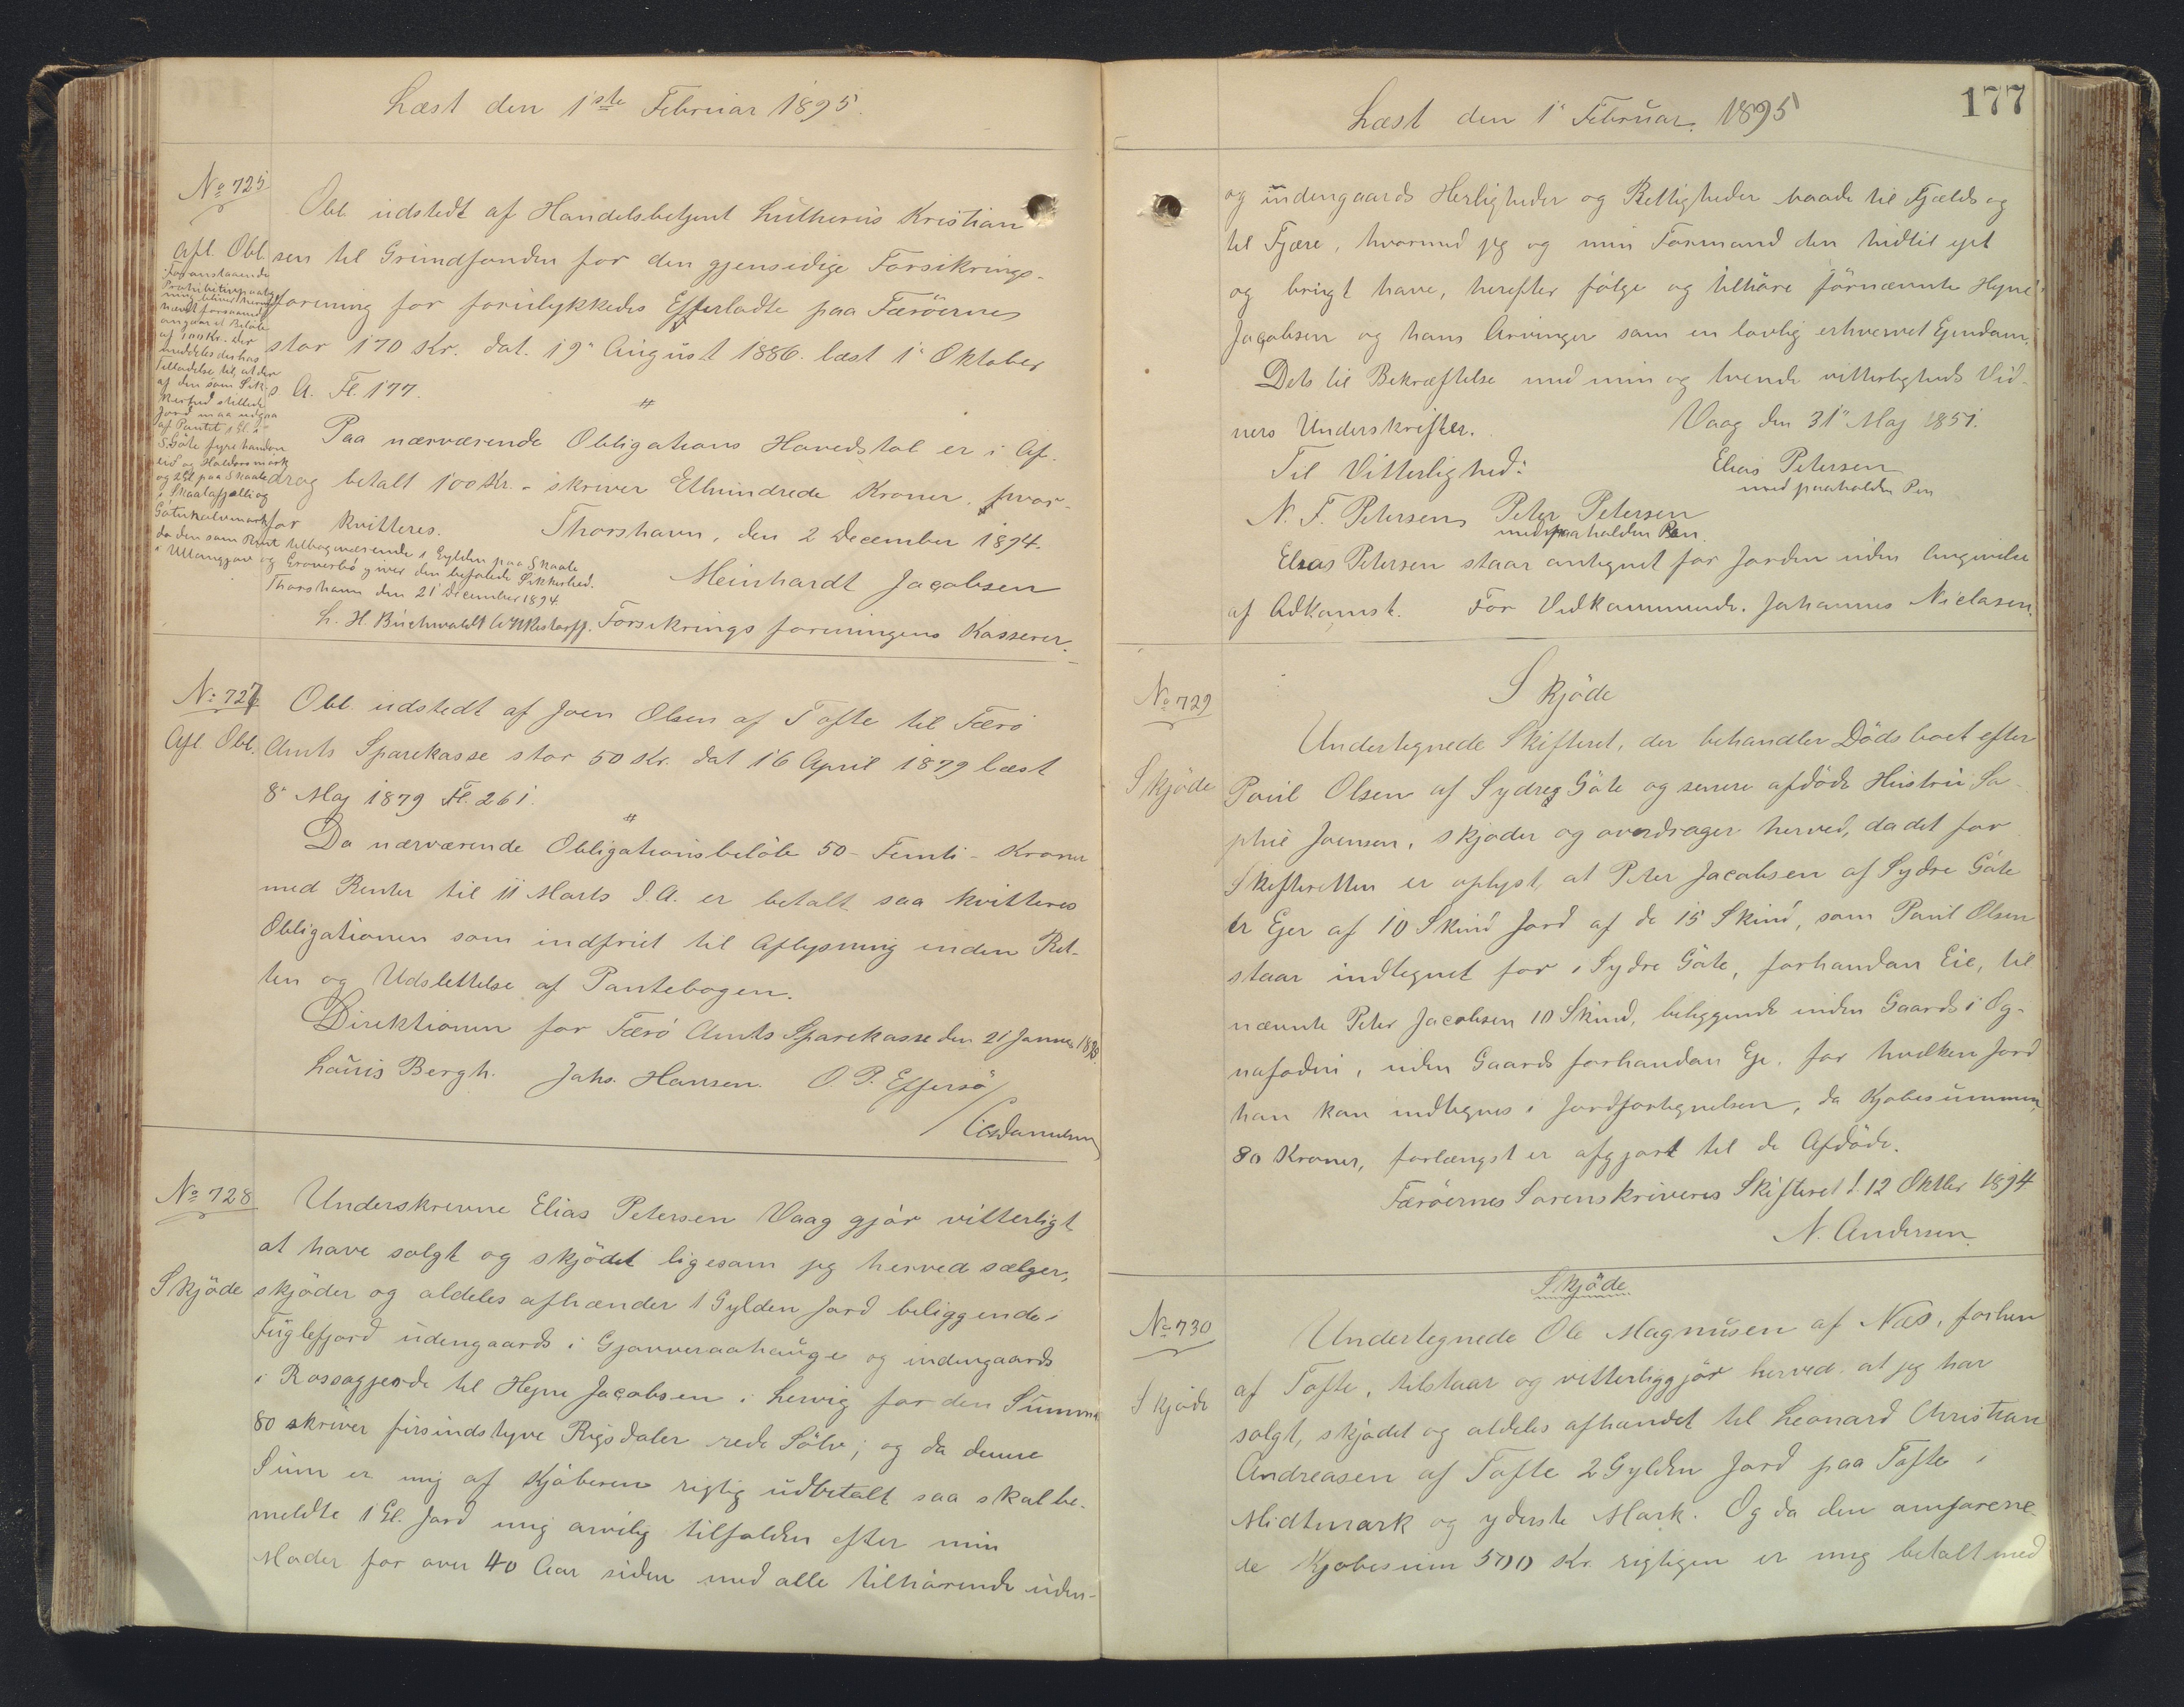 Læst den 1ste Februar 1895.
No 725
Obl. udstedt af Handelsbetjent Lutherus Kristian
Afl. Obl.
sen til Grundfonden for den gjensidige Forsikrings-
forening for forulykkedes Efterladte paa Færöerne
stor 170 Kr. dat. 19" August 1886. læst 1" Oktober
s. A. Fl. 177.
Paa nærværende Obligations Hovedstol er i Af-
drag betalt 100 Kr. - skriver Ethundrede Kroner, hvor-
for kvitteres. Thorshavn, den 2 December 1894.
Meinhardt Jacobsen
Forsikringsforeningens Kasserer.
Foranstaaende
Prohibitivpaateg
ning bliver herved
meddt forsaavidt
angaar et Beløb
af 100 Kr. der
meddeles derhos
Tilladelse til, at der
af den som Sik-
kerhed stillede
Jord maa udgaa
af Pantet 1 Gl. i
S. Göte fyrehandan
eid og Haldorsmörk
og 2 Gl paa Skaale
i Skaalafjælli og
Götukalvmark
da den som Rest tilbageværende 1 Gylden paa Skaale
i Utlangjov og Groverbö yver den befalede Sikkerhed.
Thorshavn den 21 December 1894.
L. H. Buchwaldt
No 727
Obl. udstedt af Joen Olsen af Tofte til Færö
Afl. Obl.
Amts Sparekasse stor 50 Kr. dat 16 April 1879 læst
8" Maj 1879 Fl. 261.
Da nærværende Obligationsbelöb 50 - Femti - Kroner
med Renter til 11 Marts d. A. er betalt saa kvitteres
Obligationen som indfriet til Aflysning inden Ret-
ten og Udslettelse af Pantebogen.
Direktionen for Færö Amts Sparekasse den 21 Januar 1895.
Louis Bergh. Johs. Hansen. O. P. Effersö
No 728
Underskrevne Elias Petersen Vaag gjör vitterligt
at have solgt og skjödet ligesom jeg herved sælger,
Skjöde
skjöder og aldeles afhænder 1 Gylden Jord beliggende i
Fuglefjord udengaards i Gjovveraahauge og indengaards
i Rossagjerde til Hejne Jacobsen i Lervig for den Summa
80 skriver firsindstyve Rigsdaler rede Sölv; og da denne
Sum er mig af Kjöberen rigtig udbetalt saa skal be-
meldte 1 Gl. Jord mig arvelig tilfalden efter min
Moder for over 40 Aar siden med alle tilhörende uden-
Læst den 1" Februar. 1895
177
og indengaards Herligheder og Rettigheder baade til Fjelds og
til Fjære, hvormed jeg og min Formand den hidtil ejet
og brugt have, herefter fölge og tilhöre förnævnte Hejne
Jacobsen og hans Arvinger som en lovlig erhvervet Ejendom.
Dets til Bekræftelse med min og tvende vitterligheds Vid-
ners Underskrifter. Vaag den 31" Maj 1851.
Til Vitterlighed: Elias Petersen
med paaholden Pen
N. F. Petersen Peter Petersen
med paaholden Pen.
Elias Petersen staar antegnet for Jorden uden Angivelse
af Adkomst. For Vedkommende. Johannes Niclasen.
No 729
Skjöde
Undertegnede Skifteret, der behandler Dödsboet efter
Skjöde
Poul Olsen af Sydre Göte og senere afdöde Hustru So-
phie Joensen, skjöder og overdrager herved, da det for
Skifteretten er oplyst, at Peter Jacobsen af Sydre Göte
er Ejer af 10 Skind Jord af de 15 Skind, som Poul Olsen
staar indtegnet for i Sydre Göte, forhandan Eie, til
nævnte Peter Jacobsen 10 Skind, beliggende inden Gaards i Og-
nafodni, uden Gaards forhandan Eje. for hvilken Jord
han kan indtegnes i Jordfortegnelsen, da Kjöbesummen,
80 Kroner, forlængst er afgjort til de Afdöde.
Færöernes Sorenskriveres Skifteret d. 12 Oktbr 1894
N. Andersen.
Skjöde.
No 730
Undertegnede Ole Magnusen af Næs, forhen
Skjöde
af Tofte, tilstaar og vitterliggjör herved at jeg har
solgt, skjödet og aldeles afhændet til Leonard Christian
Andreasen af Tofte 2 Gylden Jord paa Tofte i
Midtmark og yderste Mark. Og da den omforene-
de Kjöbesum 500 Kr. rigtigen er mig betalt med